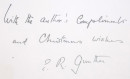 With the author's Compliments
and Christmas wishes
P. R. Gunther